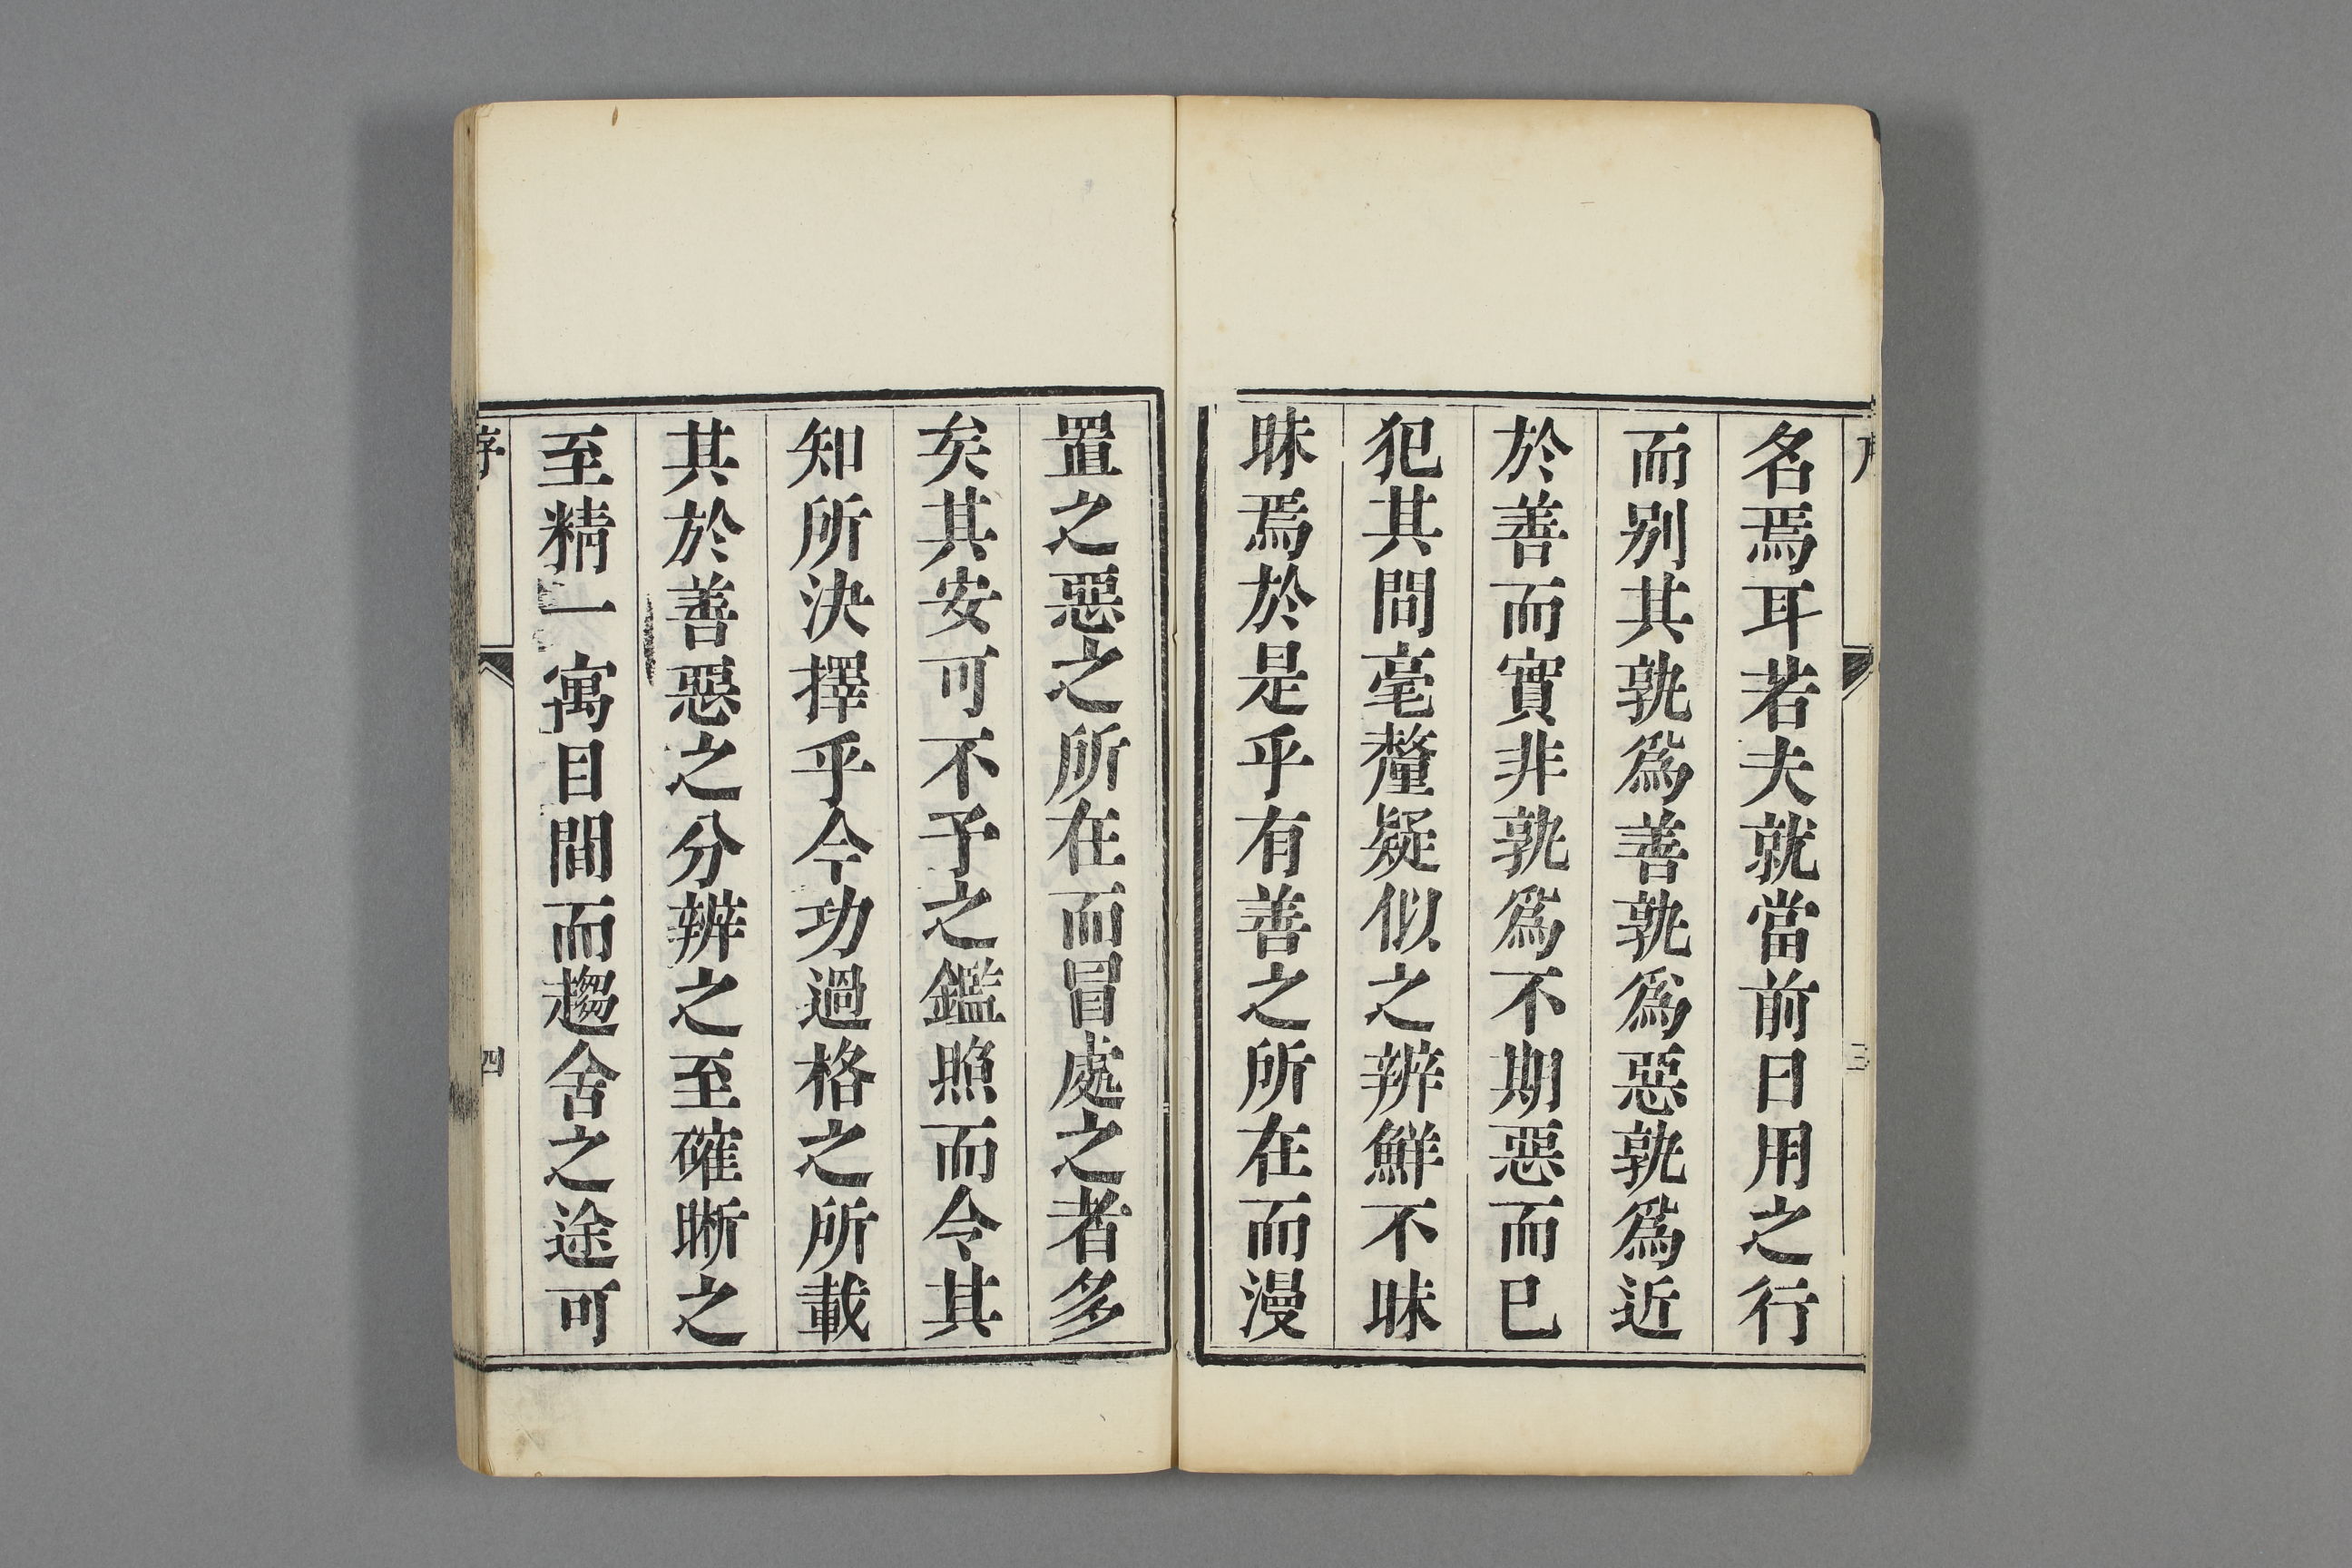 名焉耳若夫就當前日用之行
而別其孰爲善孰爲惡孰爲近
於善而實非孰爲不期惡而已
犯其間毫釐疑似之辨鮮不昧
昧焉於是乎有善之所在而漫
置之惡之所在而冒處之者多
矣其安可不予之鑑照而令其
知所決擇乎今功過格之所載
其於善惡之分辨之至確晰之
至精一寓目間而趨舍之途可
序
四